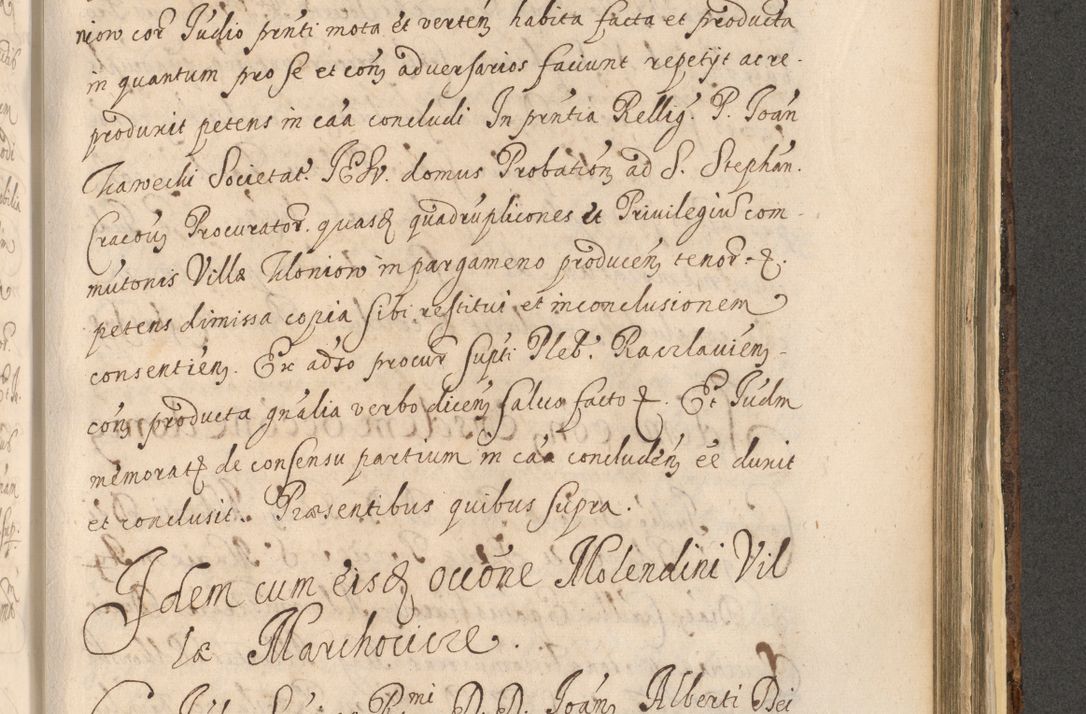 niow cor Judio prnti mota et verten habita facta et producta
in quantum pro se et con adversarios faciunt repetÿt ac re-
produxit petens in caa concludi In prntia Rellig. P. Joan
Societat. JESV. domus Probation ad S. Stephan.
Cracov Procurator. quasq quadruplicones et Privilegiu com-
mutonis Villæ in pargameno producen tenor
petens dimissa copia sibi restitui et in conclusionem
consentien. Ex adso procur supti Pleb. Raczlavien
con producta gnalia verbo dicen salvo facto Et Judm
memorat de consensu partium in caa concluden ee duxit
et conclusit. Præsentibus quibus supra.
Idem cum eisq occone Molendini Vil
læ Marchocicze.
R mi D. D. Joan Alberti Dei